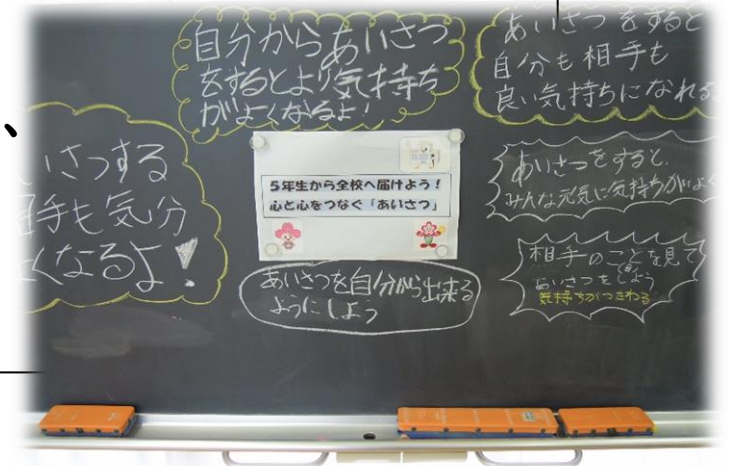 自分からあいさつ
をするとより気持ち
がよくなるよ！
あいさつをすると
自分も相手も
良い気持ちになれる
いさつする
手も気分
くなるよ！
5年生から全校へ届けよう！
心と心をつなぐ「あいさつ」
あいさつをすると、
みんな元気に気持ちがよく
相手のことを見て
あいさつをしよう
気持ちがつたわる
あいさつを自分から出来る
ようにしよう